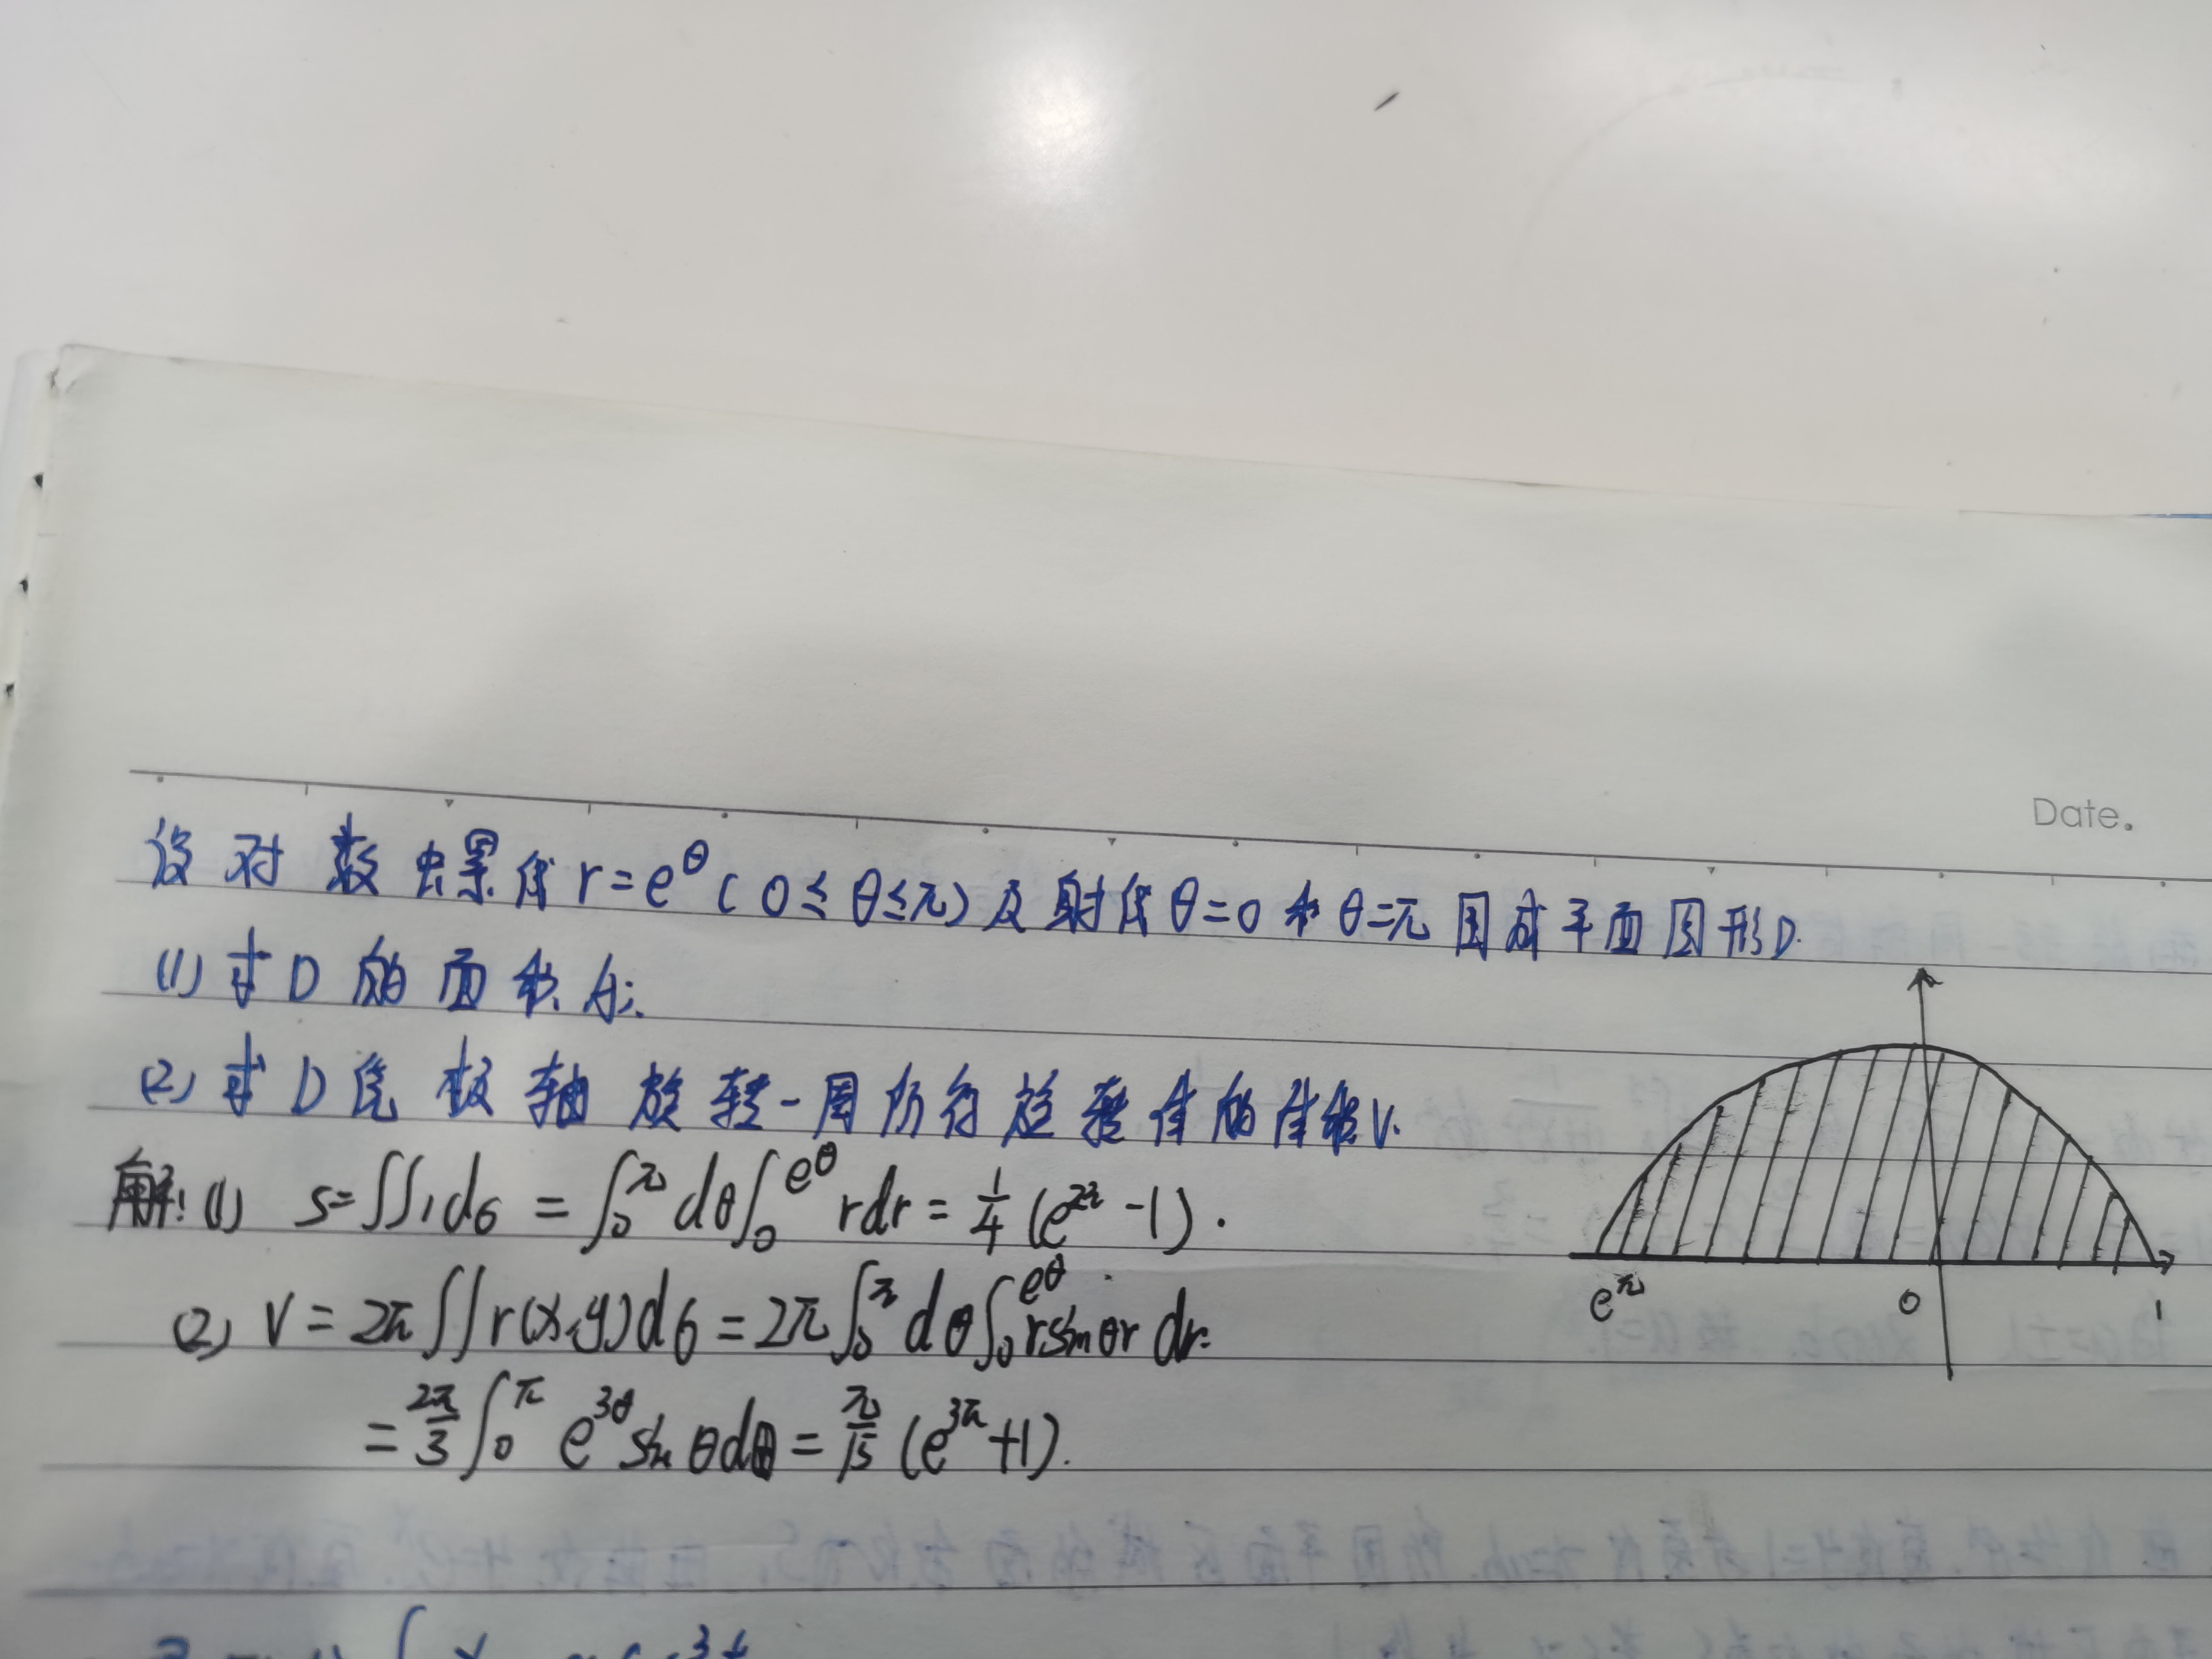 Date.
设对数螺线 r=e^θ (0≤θ≤π) 及射线θ=0和θ=π围成平面图形D.
(1) 求D的面积A;
(2) 求D绕极轴旋转一周所得旋转体的体积V.
解: (1) S=∬1dσ = ∫_0^π dθ∫_0^{e^θ} rdr = 1/4 (e^{2π} -1).
(2) V = 2π∬r(x,y)dσ = 2π∫_0^π dθ∫_0^{e^θ} rsinθr dr
= 2π/3 ∫_0^π e^{3θ} sin θdθ = π/15 (e^{3π}+1).
e^π 0 1